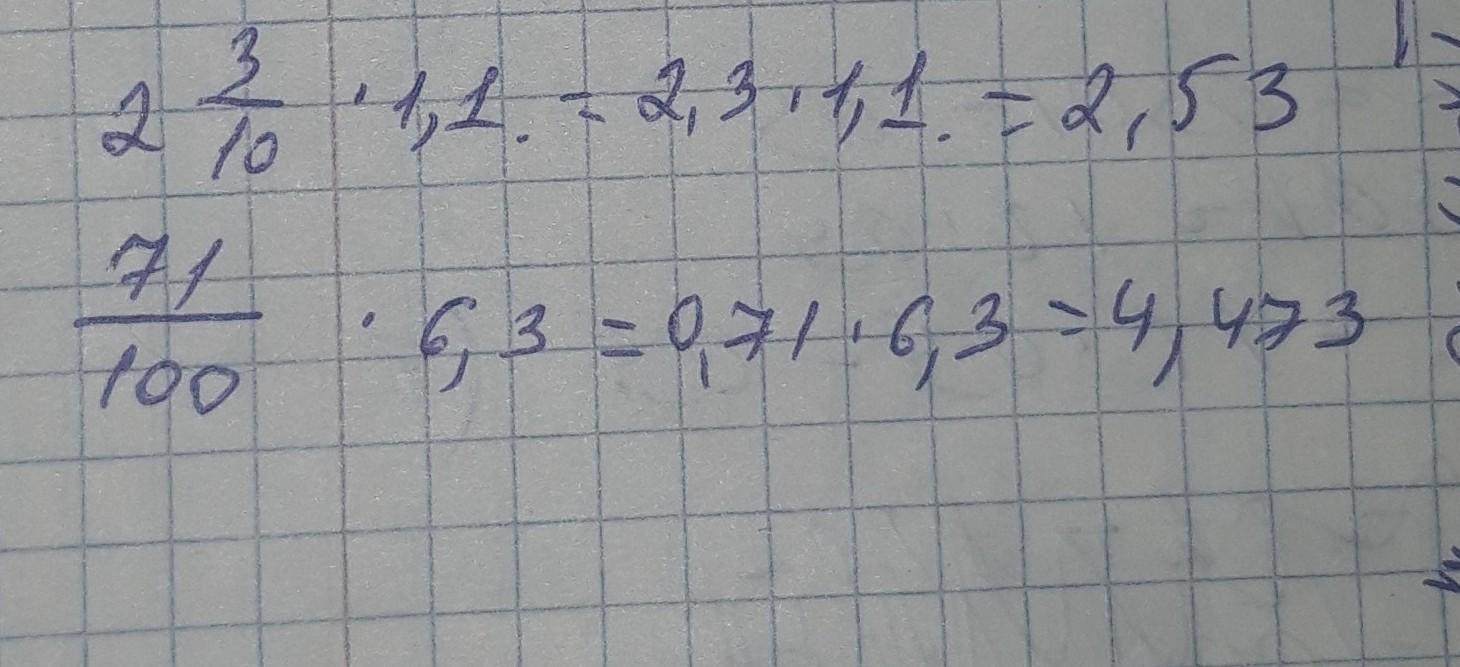 2 3/10 · 1,1. = 2,3 · 1,1. = 2,53
71/100 · 6,3 = 0,71 · 6,3 = 4,473